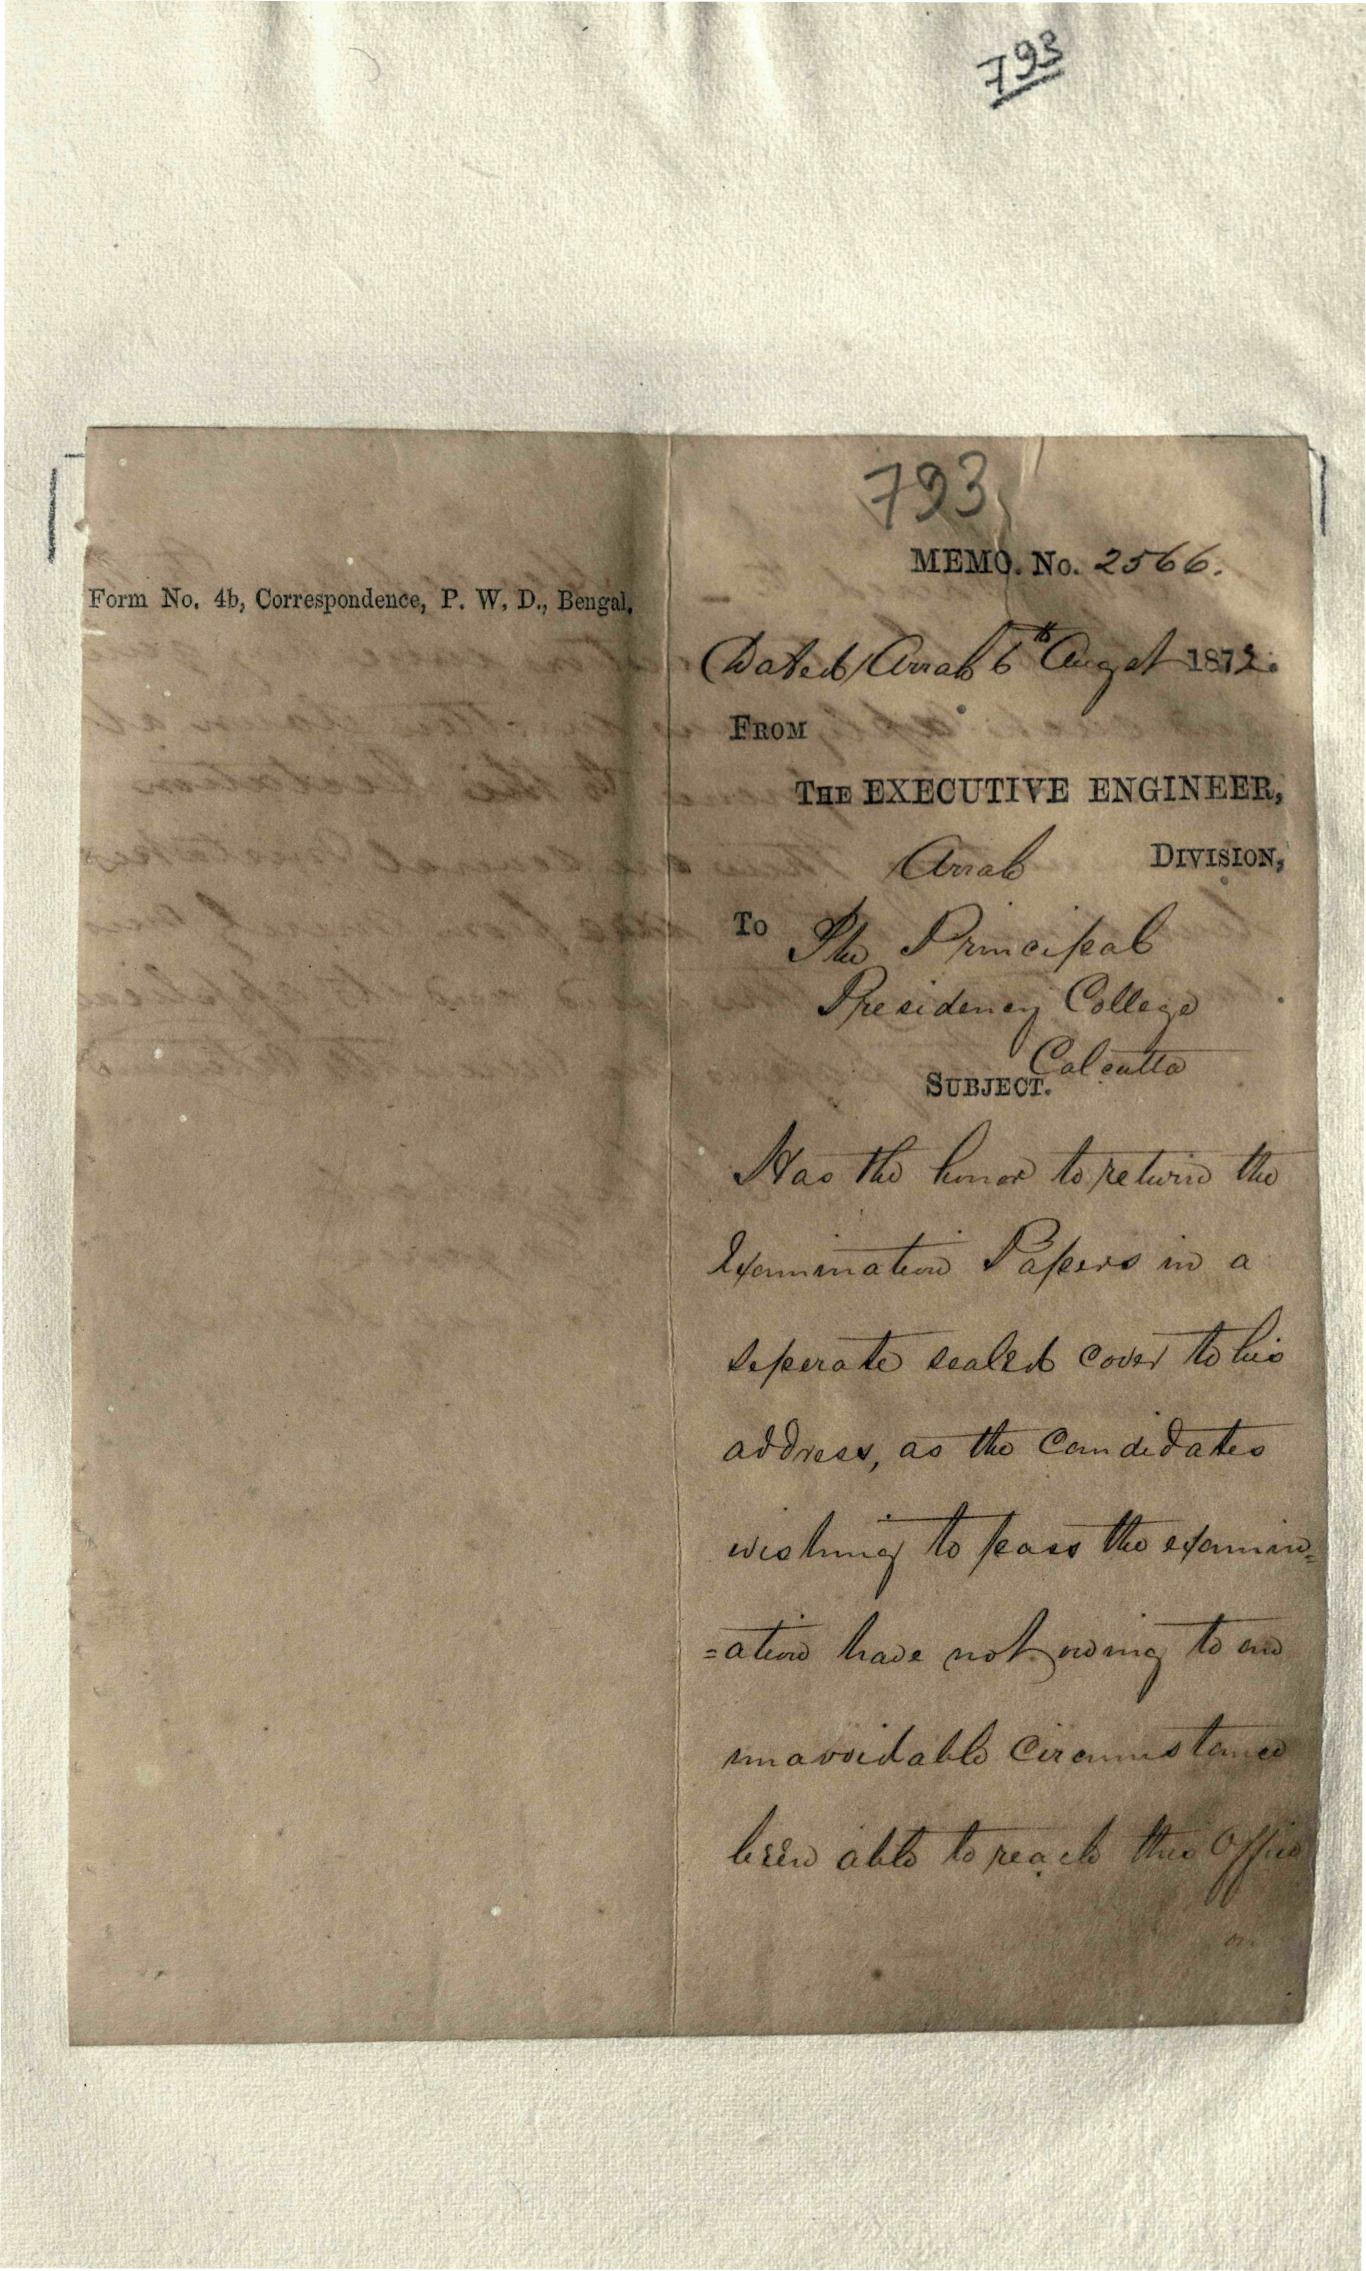 793
793
Form No. 4b, Correspondence, P. W. D., Bengal.
MEMO. No. 2566.
Dated/Arrah 6th Augst 1872.
FROM
THE EXECUTIVE ENGINEER,
Arrah DIVISION,
To The Principal
Presidency College
Calcutta
SUBJECT.
Has the honor to return the
Examination Papers in a
seperate sealed cover to his
address, as the Candidates
wishing to pass the examin=
=ation have not owing to an
unavoidable Circumstance
been able to reach this Office
on